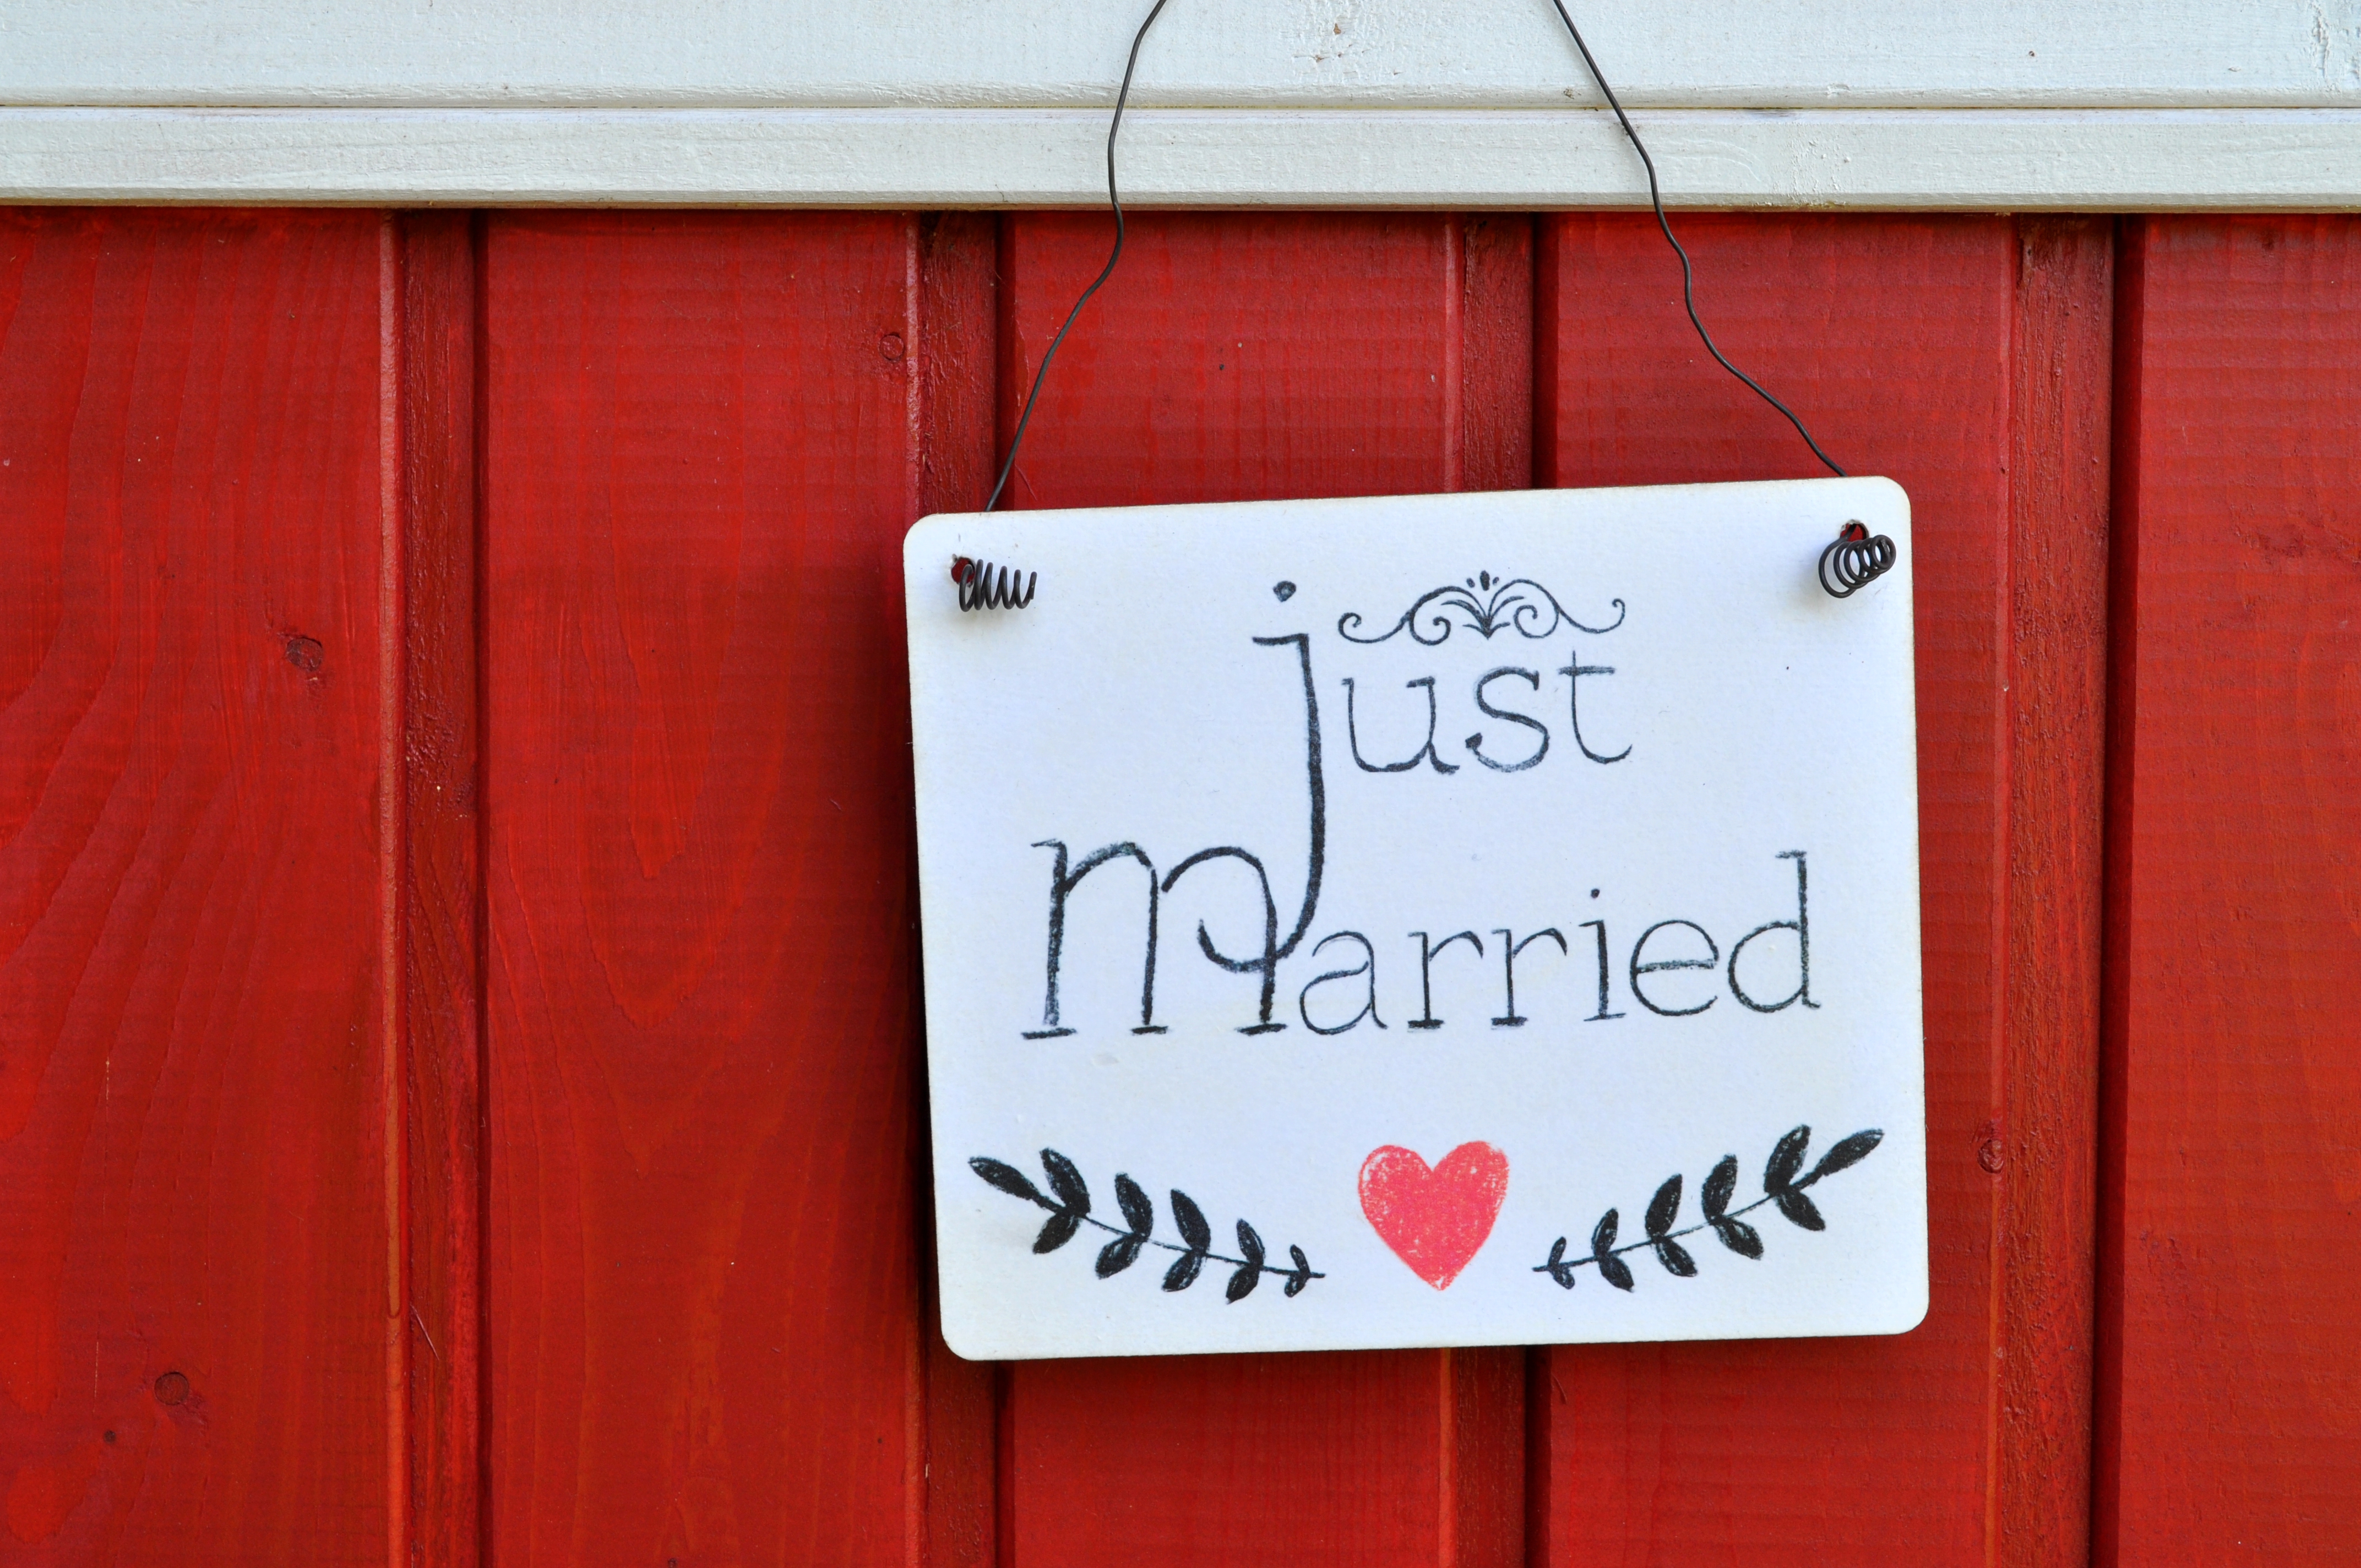 just
married